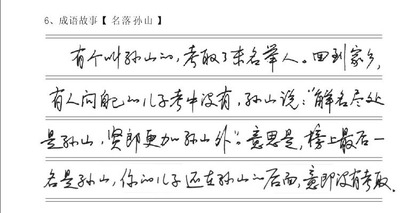 6、成语故事【名落孙山】
有个叫孙山的，考取了末名举人。回到家乡，
有人问他的儿子考中没有，孙山说："解名尽处
是孙山，贤郎更加孙山外"。意思是，榜上最后一
名是孙山，你的儿子还在孙山的后面，意即没有考取。